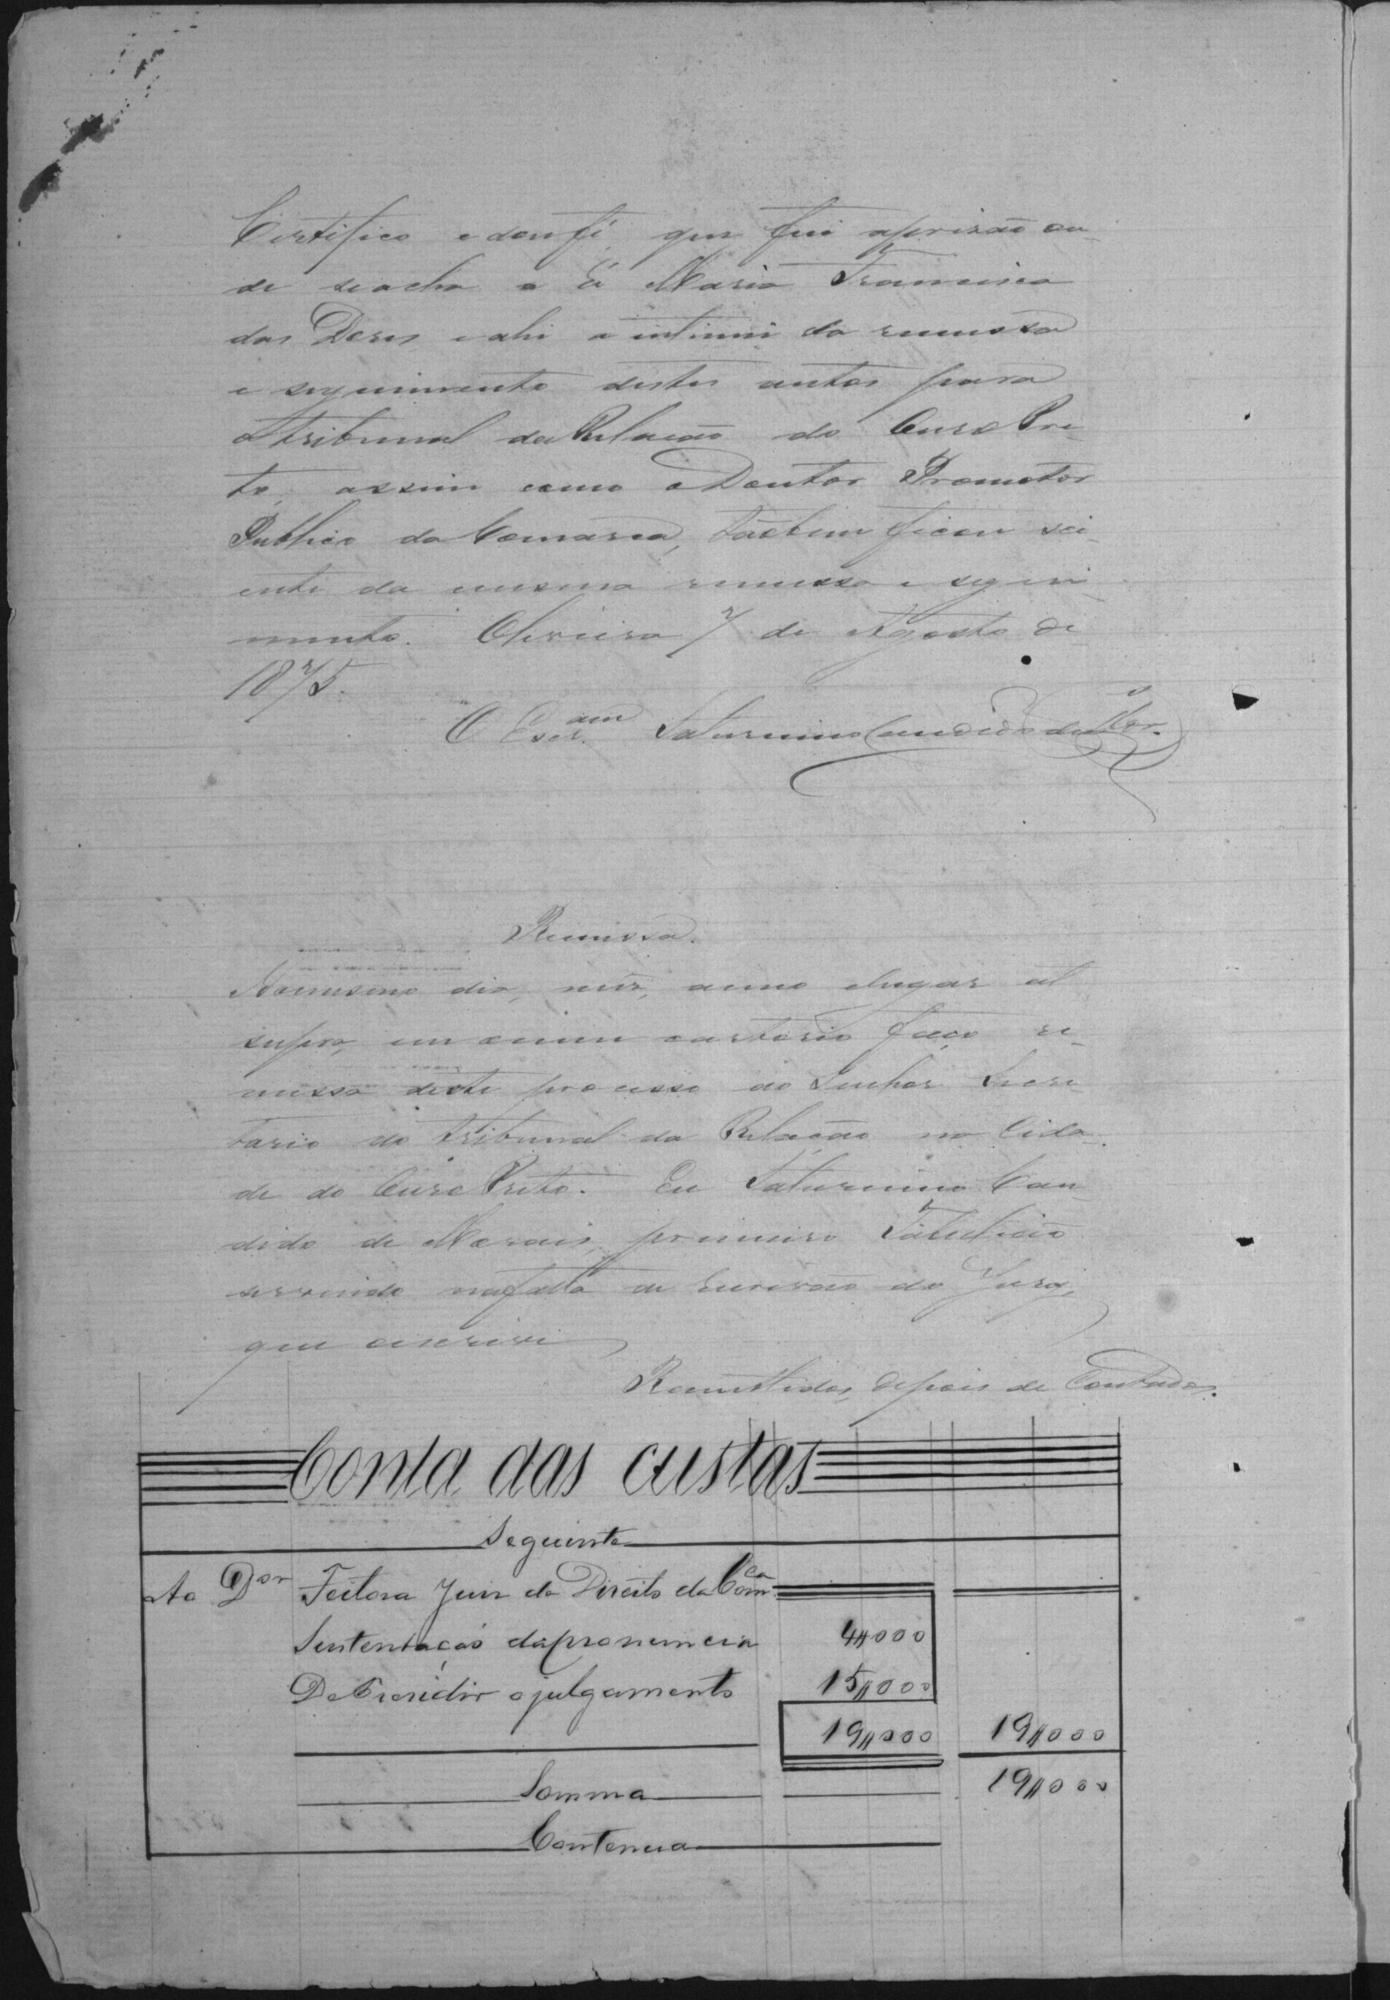 Certifico e dou fé, que fui aprisão on-
de seacha a Ré Maria Francisca
das Dores e ahi a intimei da remessa
e seguimento destes autos para
o tribunal da Relação do Ouro Pre-
to, assim como o Doutor Promotor
Publico da Comarca, tãobem ficou sci-
ente da mesma remessa e segui-
mento. Oliveira 7 de Agosto de
1875.
O Escr.am Saturnino Candido de Mor.
Remessa.
No mesmo dia, mez, anno elugar at
supra, em oumeu cartorio faço re-
messa deste processo ao Senhor Secre
tario do tribunal da Relação na Cida-
de do Ouro Preto. Eu Saturnino Can-
dido de Moraes, primeiro Tabelião
servindo nafalta de Escrivão do Jury,
que escrevi
Remettidos, depois de Contados.
Conta das custas
Seguinte
Ao Dor Feitosa Juis de Direito da Comca
Sustentação dapronuncia 4$000
De Presidir ojulgamento 15$000
19$000 19$000
Somma 19$000
Contenua